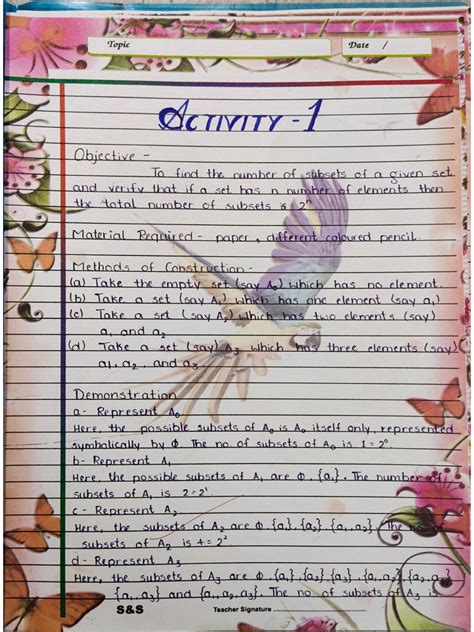 Topic
Date /
ACTIVITY - 1
Objective -
To find the number of subsets of a given set
and verify that if a set has n number of elements then
the total number of subsets is 2ⁿ
Material Required - paper, different coloured pencil.
Methods of Construction -
(a) Take the empty set (say A₀) which has no element.
(b) Take a set (say A₁) which has one element (say a₁)
(c) Take a set (say A₂) which has two elements (say)
a₁ and a₂
(d) Take a set (say) A₃ which has three elements (say)
a₁, a₂ and a₃
Demonstration
a - Represent A₀
Here, the possible subsets of A₀ is A₀ itself only, represented
symbolically by Φ. The no. of subsets of A₀ is 1 = 2⁰.
b - Represent A₁
Here, the possible subsets of A₁ are Φ, {a₁}. The number of
subsets of A₁ is 2 = 2¹.
c - Represent A₂
Here, the subsets of A₂ are Φ, {a₁}, {a₂}, {a₁, a₂}. The no of
subsets of A₂ is 4 = 2²
d - Represent A₃
Here, the subsets of A₃ are Φ, {a₁}, {a₂}, {a₃}, {a₁, a₂}, {a₂, a₃}
{a₁, a₃} and {a₁, a₂, a₃}. The no of subsets of A₃ is
S&S
Teacher Signature